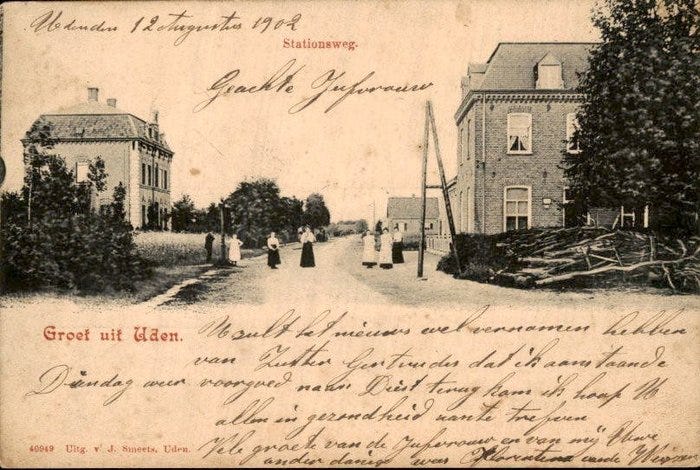 Uden 12 Augustus 1902
Stationsweg.
Geachte Jufvrouw
Groet uit Uden.
U zult het nieuws wel vernomen hebben
van Zuster Gertrudes dat ik aanstaande
Dinsdag weer voorgoed naar Diest terug kom ik hoop U
allen in gezondheid aante treffen
Vele groete van de Jufvrouw en van mij Uwe
onder danig
40949 Uitg. v. J. Smeets, Uden.